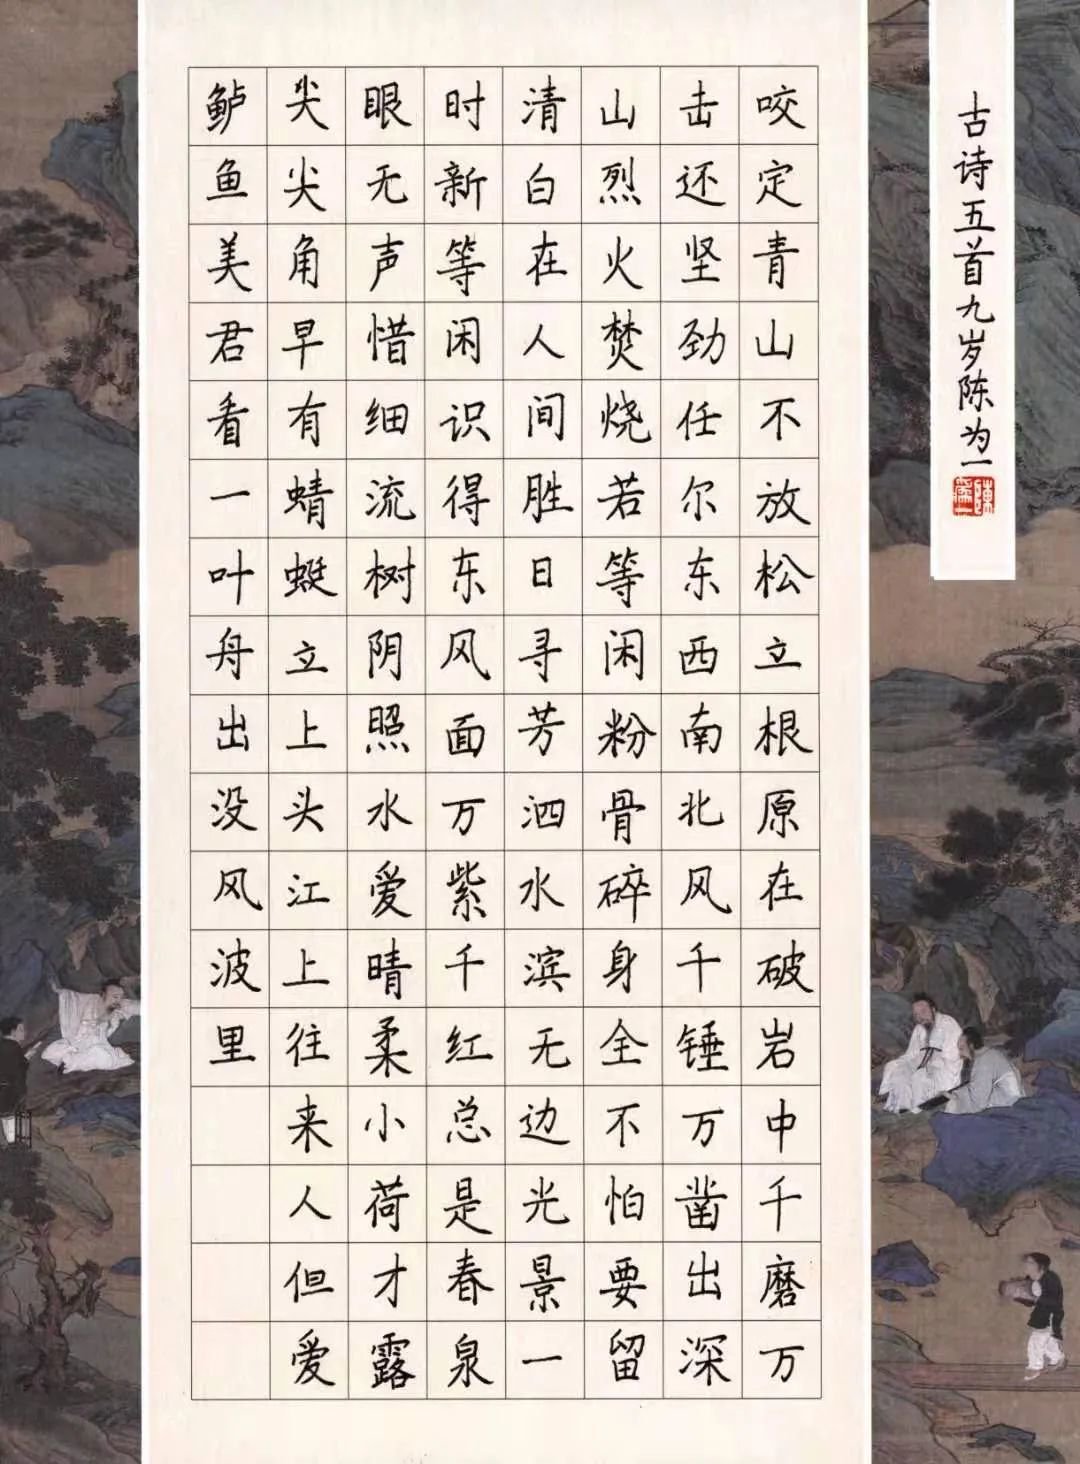 古诗五首九岁陈为一
咬定青山不放松立根原在破岩中千磨万
击还坚劲任尔东西南北风千锤万凿出深
山烈火焚烧若等闲粉骨碎身全不怕要留
清白在人间胜日寻芳泗水滨无边光景一
时新等闲识得东风面万紫千红总是春泉
眼无声惜细流树阴照水爱晴柔小荷才露
尖尖角早有蜻蜓立上头江上往来人但爱
鲈鱼美君看一叶舟出没风波里